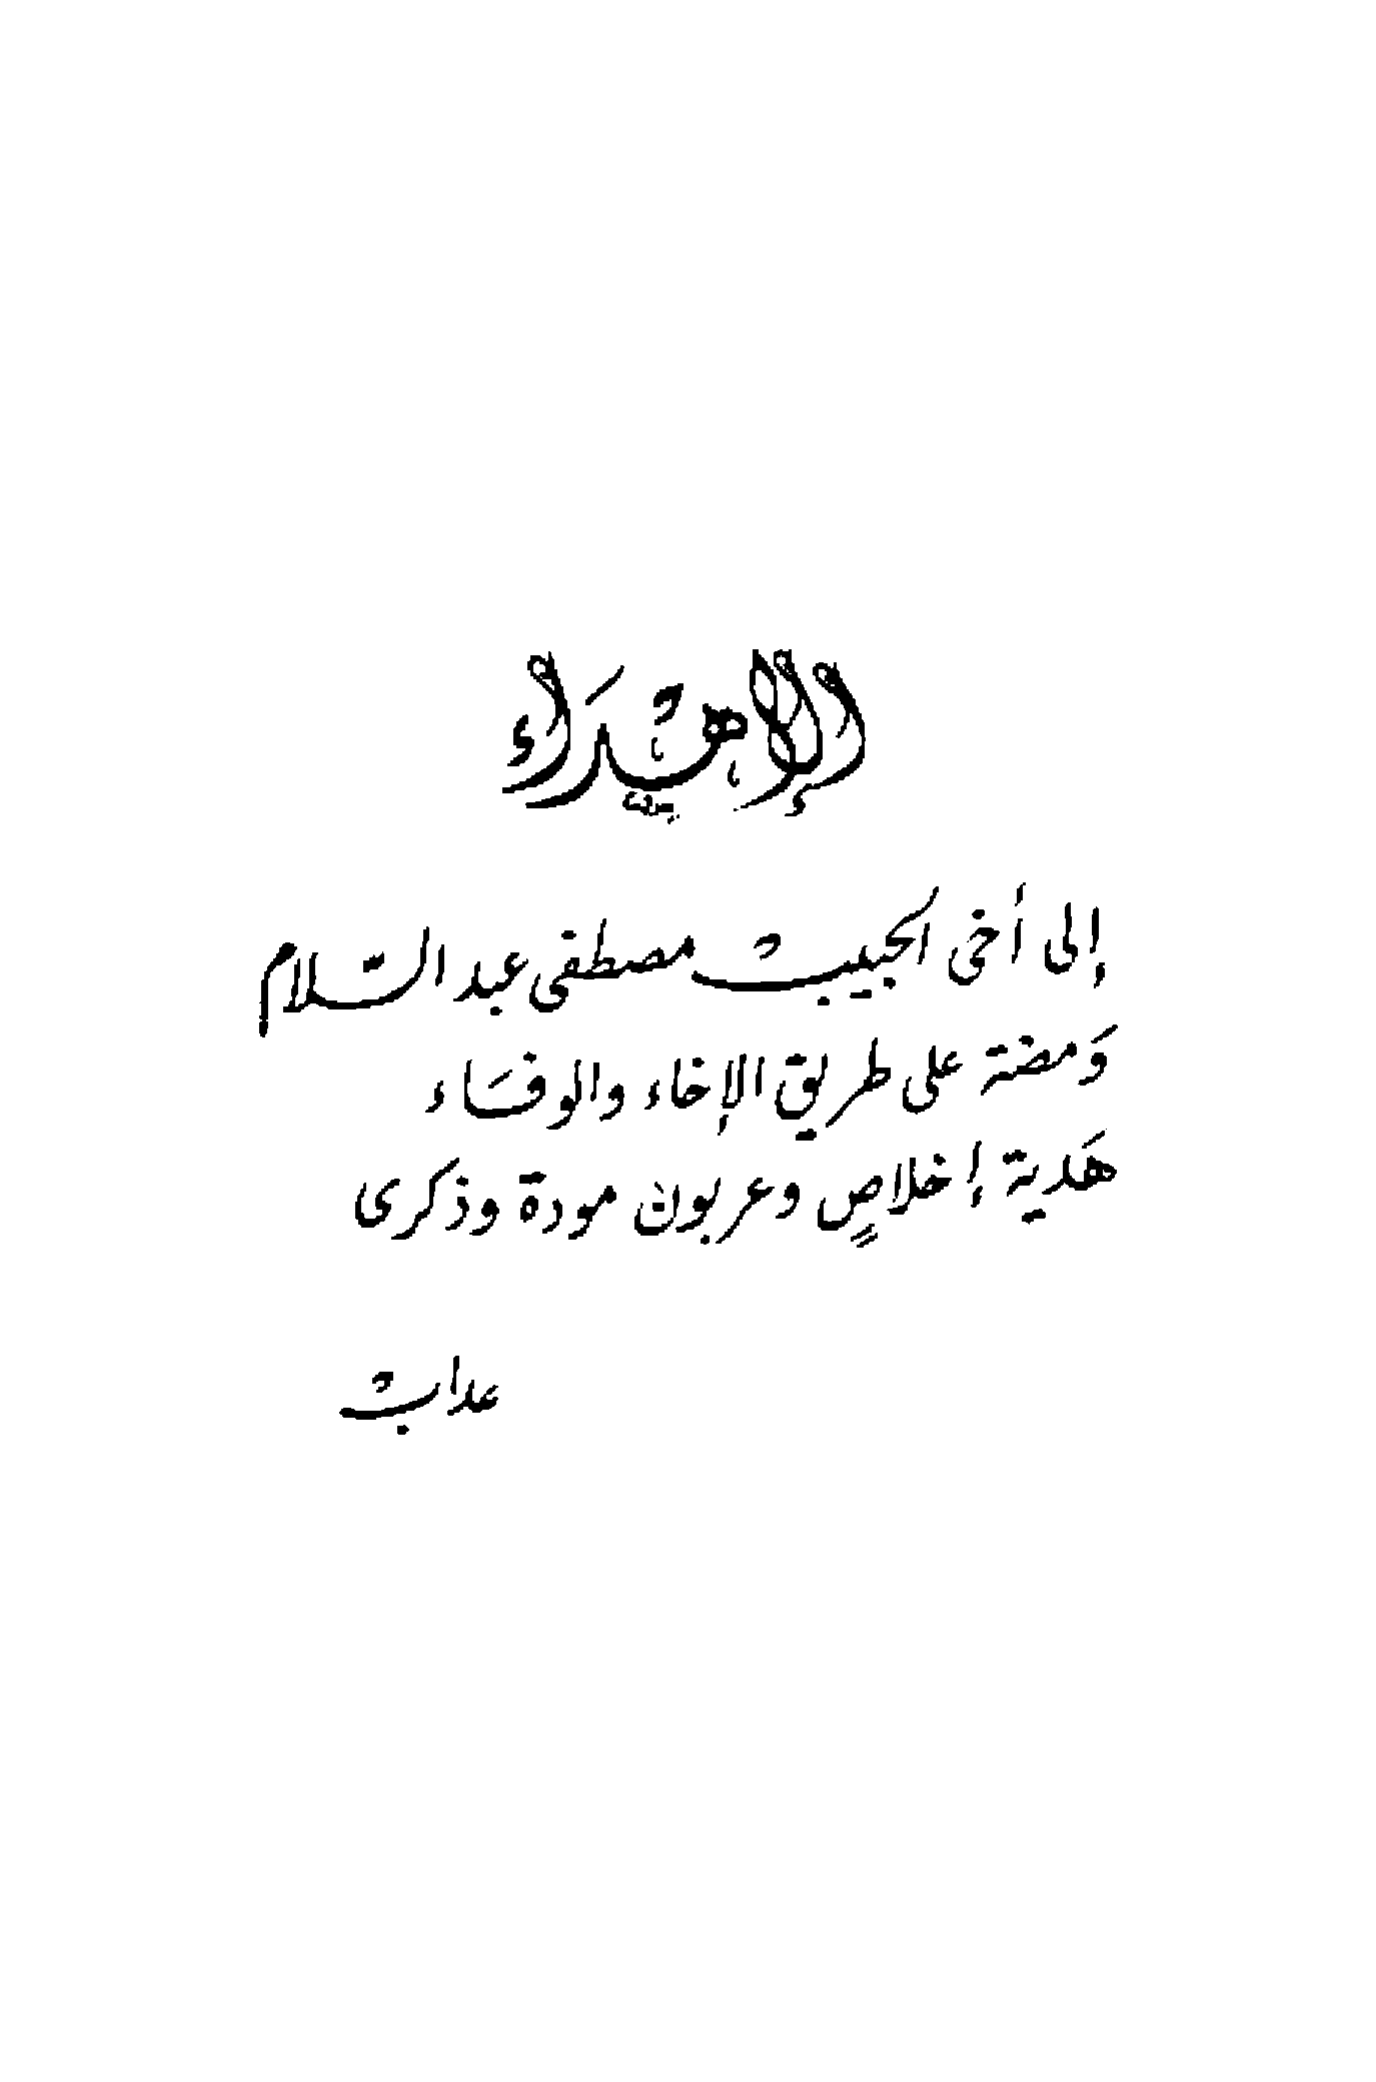 الإهداء
إلى أخي الحبيب مصطفى عبد السلام
وَمضة على طريق الإخاء والوفَاء
هَدية إخلاصٍ وعربون مودة وذكرى
عداب